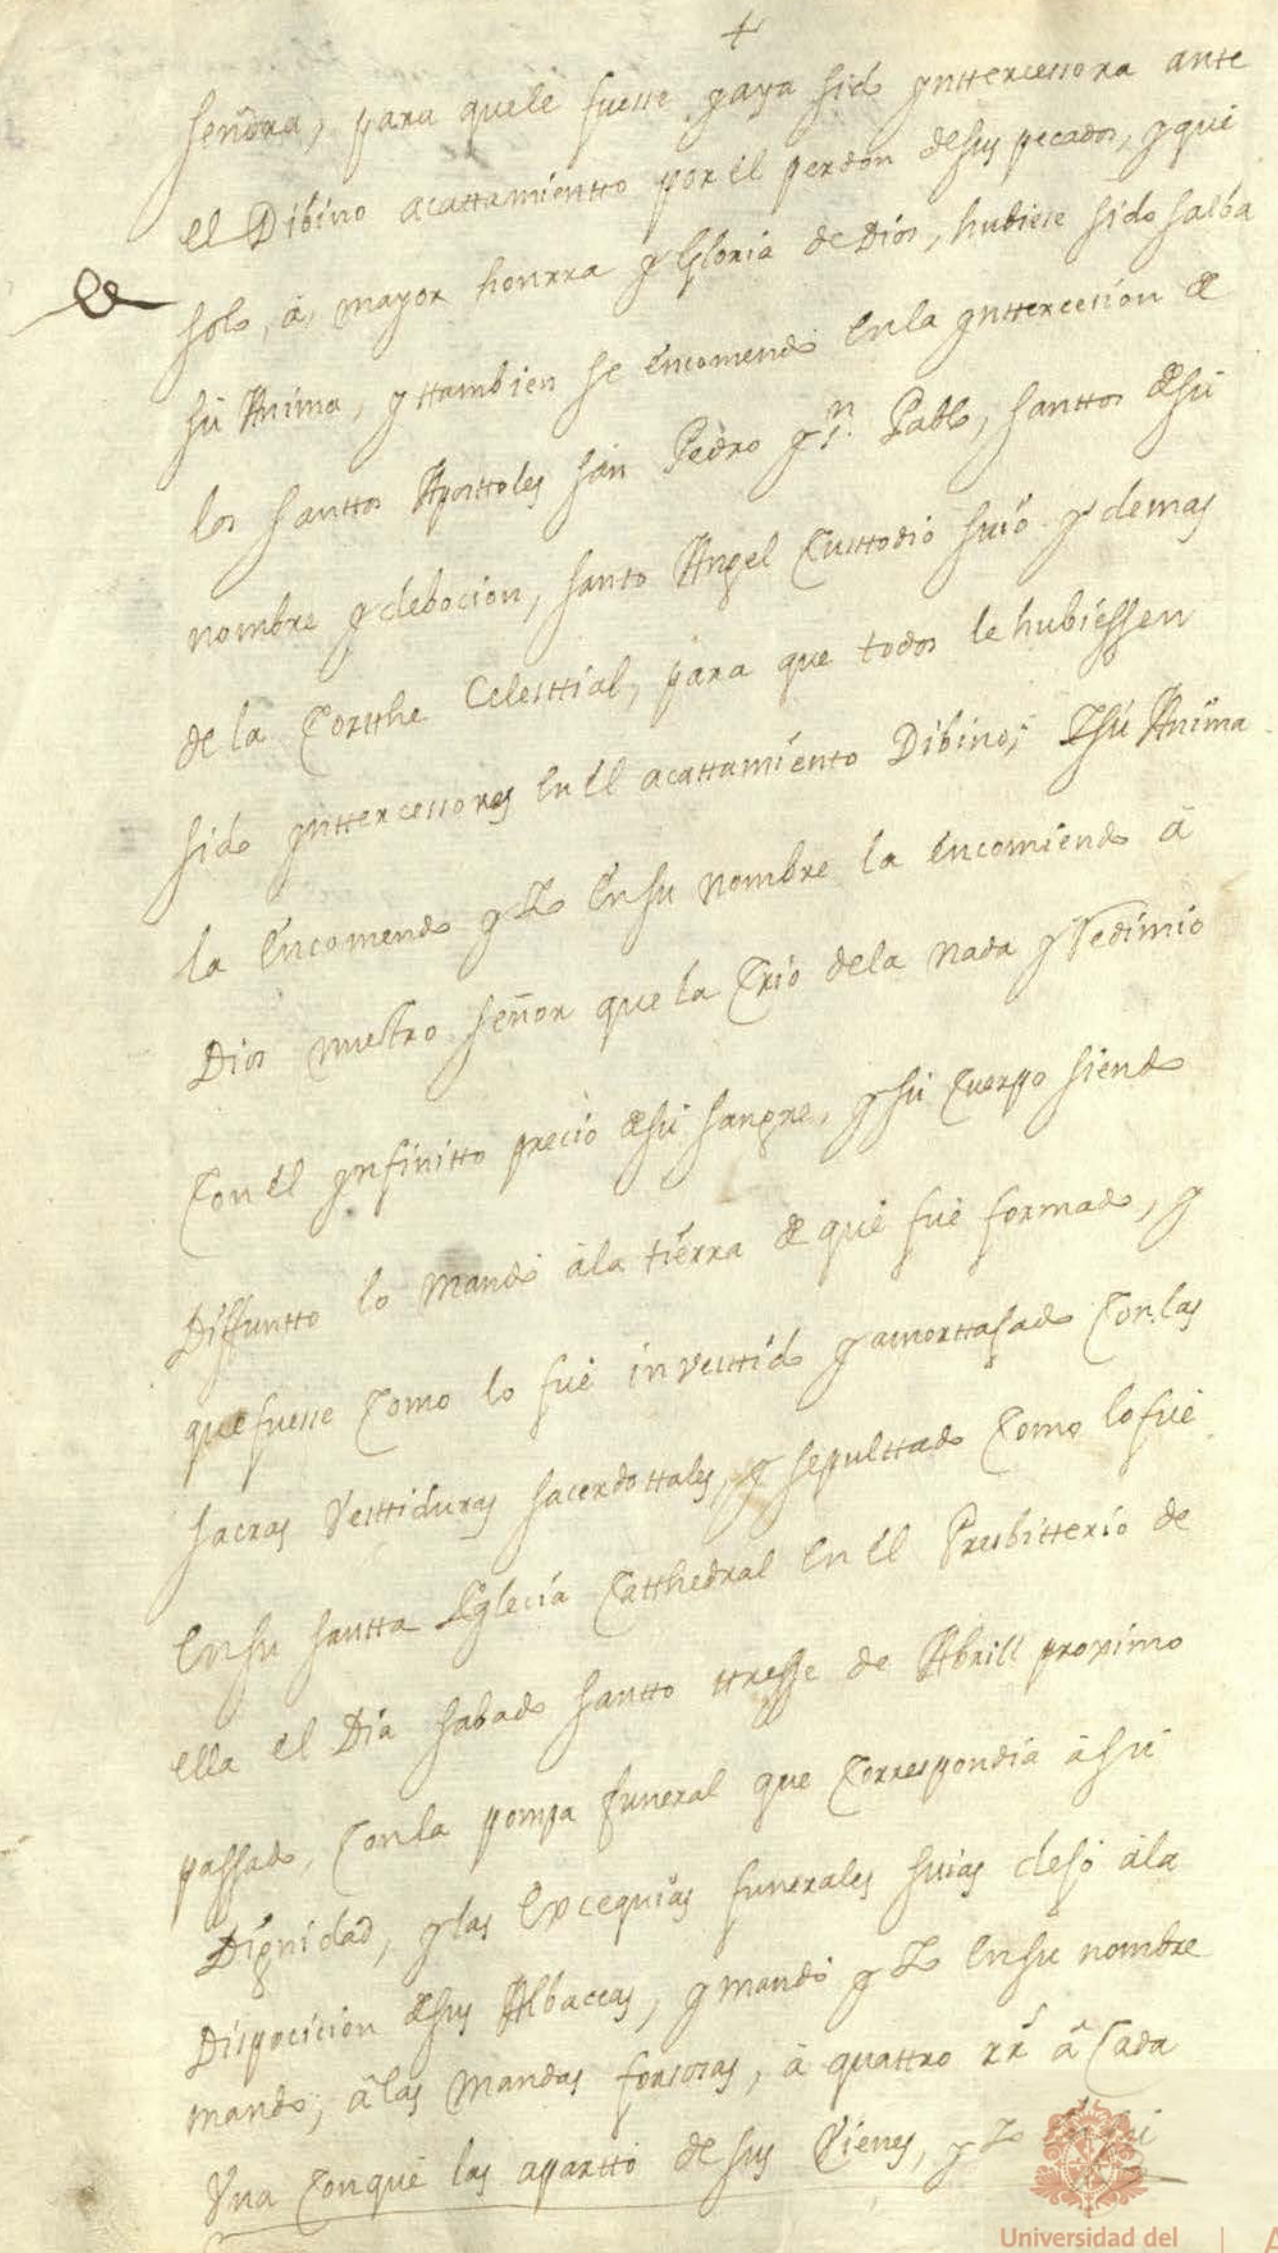 +
señora, para quele fuesse yaya sido ynttercessora ante
el Dibino acattamientto por él perdon desus pecados, yque
solo, â, mayor honrra y Gloria deDios, hubiese sido salba
sú Anima, yttambien se encomendó enla yntterceción de
los santtos Aposttoles sán Pedro y sn. Pablo, santtos desú
nombre ydebocion, santo Angel Custtodio suió ydemas
de la Cortthe Celesttial, para que todos lehubiessen
sido ynttercessores en él acattamiénto Dibino; Y sú Anima
la encomendo y Yo ensu nombre la encomiendo â
Dios nuestro señor que la Crió dela nada yRedimió
Con él ynfinitto preció desú sangre, ysú Cuerpo siendo
Diffuntto lo mandó âla tiérra de qué fué formado, y
quefuesse Como lo fué investtido yamorttajado Con las
sacras Vesttiduras sacerdottales, y sepulttado Como lofué
ensu santta Yglecía Catthedral en él Presbitterio de
ella el Día sabado santto ttresse de Abrill proximo
passado, Conla pompa funeral que Correspondía âsú
Dignidad, ylas Excequias funerales suias dejó âla
Dispocicion desus Albaceas, ymandó y Yo ensu nombre
mando; âlas mandas forsosas, â quattro rrs â Cada
Una Conqué las aparttó de sus Vienes, y Yo en sú
Universidad del
A